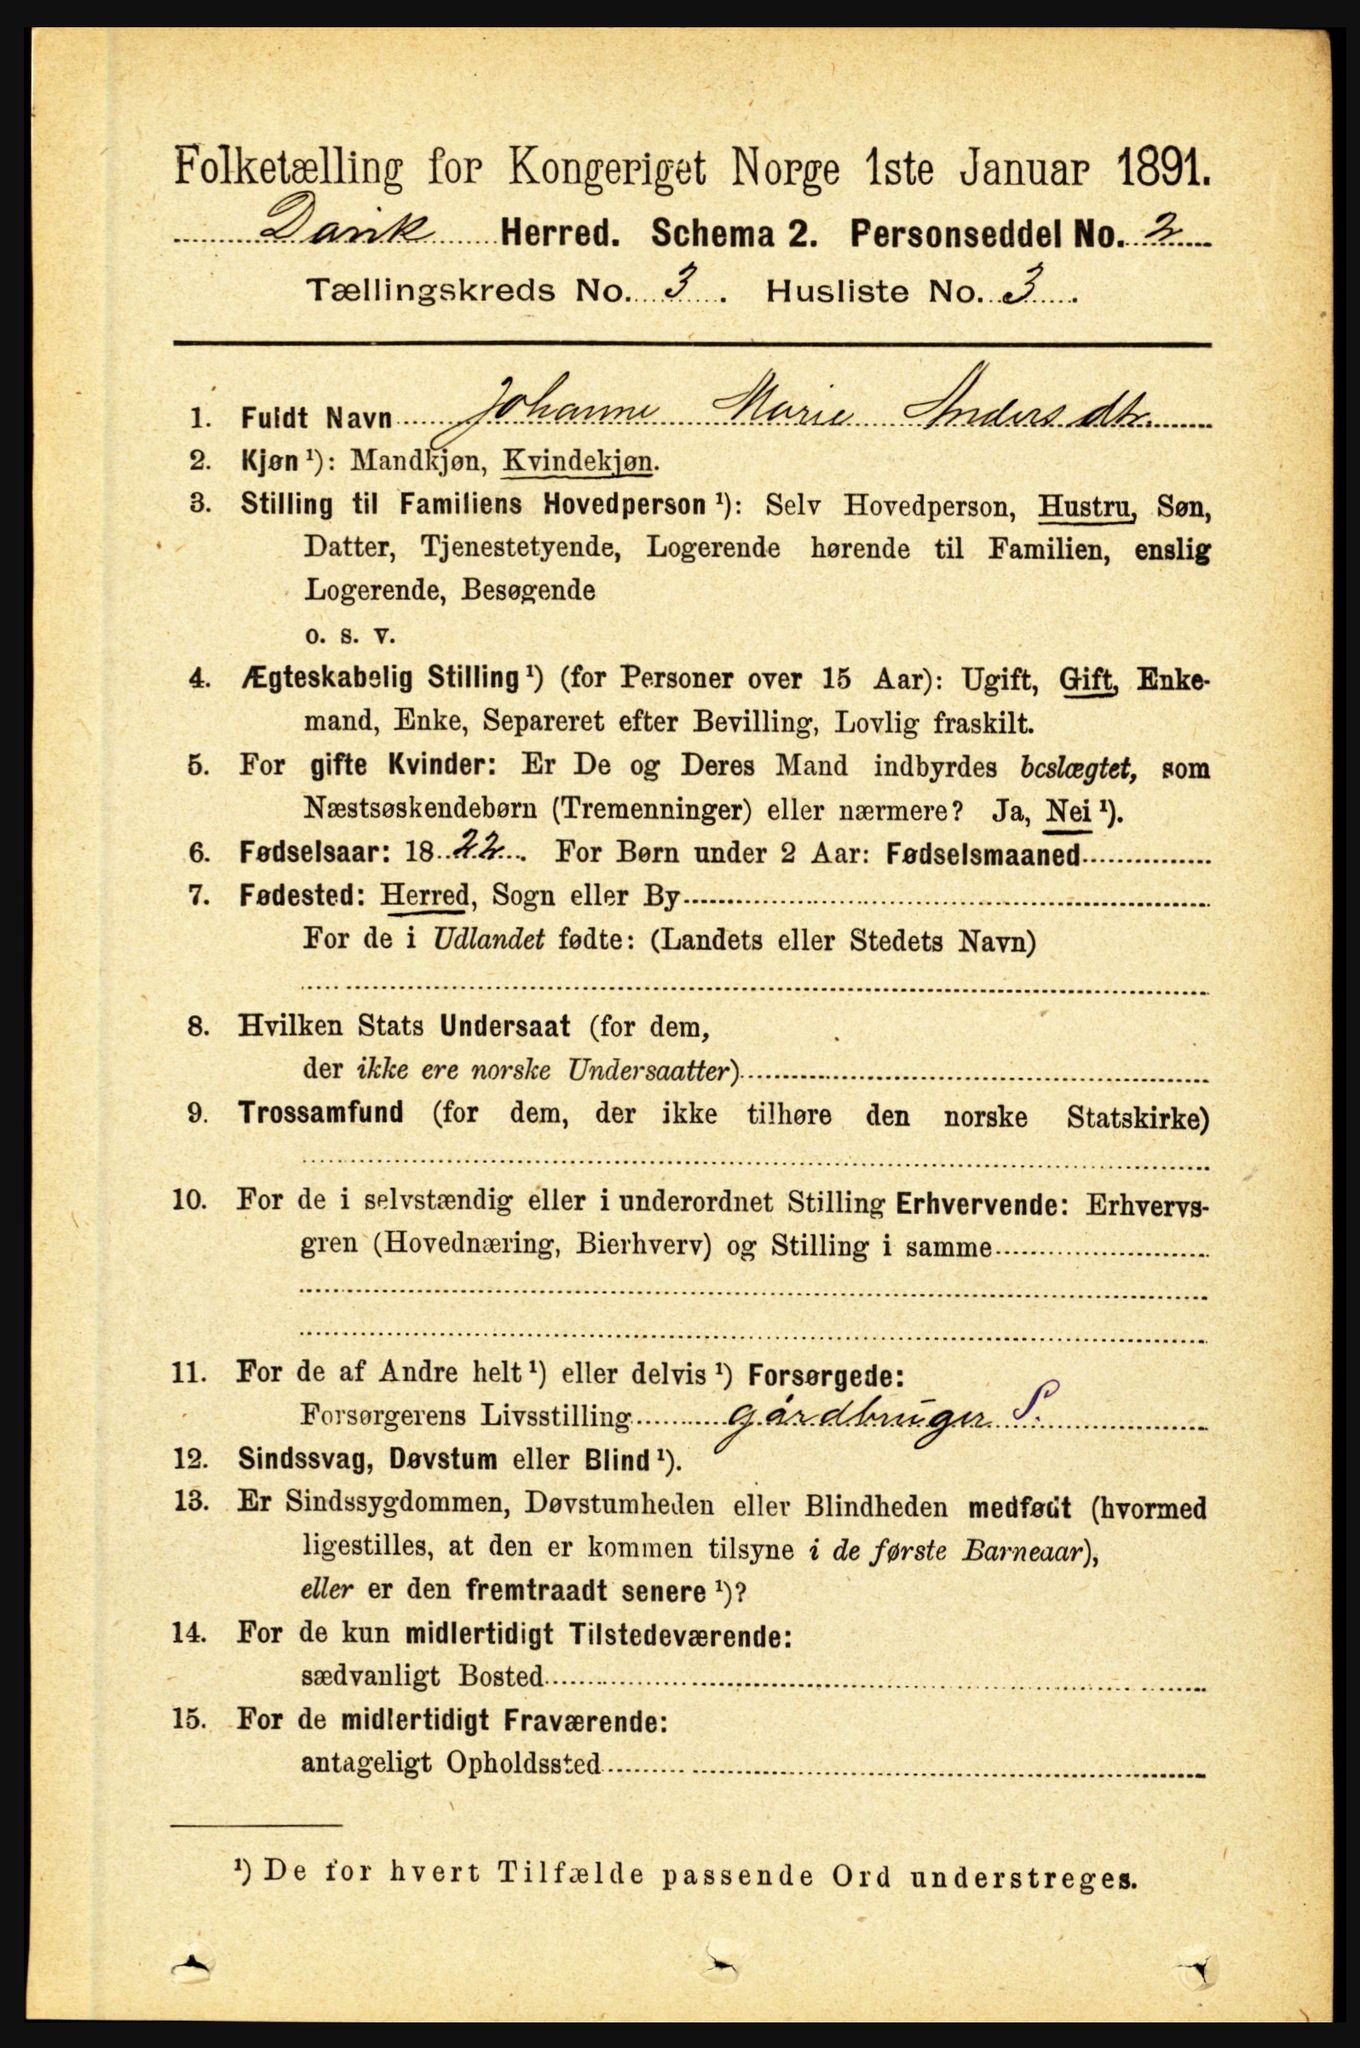 Folketælling for Kongeriget Norge 1ste Januar 1891.
Davik Herred. Schema 2. Personseddel No. 2
Tællingskreds No. 3. Husliste No. 3.
1. Fuldt Navn Johanne Marie Andersdtr.
2. Kjøn ¹): Mandkjøn, Kvindekjøn.
3. Stilling til Familiens Hovedperson ¹): Selv Hovedperson, Hustru, Søn,
Datter, Tjenestetyende, Logerende hørende til Familien, enslig
Logerende, Besøgende
o. s. v.
4. Ægteskabelig Stilling ¹) (for Personer over 15 Aar): Ugift, Gift, Enke-
mand, Enke, Separeret efter Bevilling, Lovlig fraskilt.
5. For gifte Kvinder: Er De og Deres Mand indbyrdes beslægtet, som
Næstsøskendebørn (Tremenninger) eller nærmere? Ja, Nei ¹).
6. Fødselsaar: 1822. For Børn under 2 Aar: Fødselsmaaned
7. Fødested: Herred, Sogn eller By
For de i Udlandet fødte: (Landets eller Stedets Navn)
8. Hvilken Stats Undersaat (for dem,
der ikke ere norske Undersaatter)
9. Trossamfund (for dem, der ikke tilhøre den norske Statskirke)
10. For de i selvstændig eller i underordnet Stilling Erhvervende: Erhvervs-
gren (Hovednæring, Bierhverv) og Stilling i samme
11. For de af Andre helt ¹) eller delvis ¹) Forsørgede:
Forsørgerens Livsstilling gårdbruger S.
12. Sindssvag, Døvstum eller Blind ¹).
13. Er Sindssygdommen, Døvstumheden eller Blindheden medfødt (hvormed
ligestilles, at den er kommen tilsyne i de første Barneaar),
eller er den fremtraadt senere ¹)?
14. For de kun midlertidigt Tilstedeværende:
sædvanligt Bosted
15. For de midlertidigt Fraværende:
antageligt Opholdssted
¹) De for hvert Tilfælde passende Ord understreges.